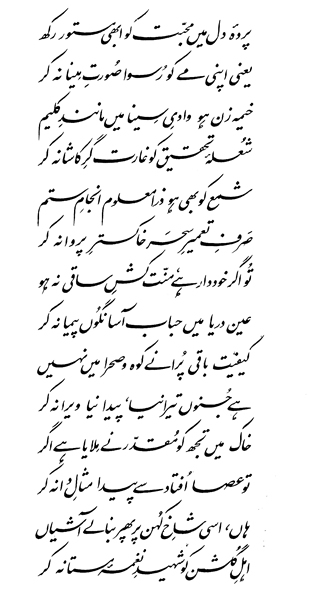 پردۂ دل میں محبّت کو ابھی مستور رکھ
یعنی اپنی مے کو رُسوا صُورتِ مینا نہ کر
خیمہ زن ہو وادیِ سینا میں مانندِ کلیم
شُعلۂ تحقیق کو غارت گرِ کاشانہ کر
شمع کو بھی ہو ذرا معلوم انجامِ ستم
صَرفِ تعمیرِ سحر خاکسترِ پروانہ کر
تُو اگر خود دار ہے، منّت کشِ ساقی نہ ہو
عین دریا میں حباب آسا نگُوں پیمانہ کر
کیفیّت باقی پُرانے کوہ و صحرا میں نہیں
ہے جُنوں تیرا نیا، پیدا نیا ویرانہ کر
خاک میں تجھ کو مُقدّر نے مِلایا ہے اگر
تو عصا اُفتاد سے پیدا مثالِ دانہ کر
ہاں، اسی شاخِ کُہن پر پھر بنا لے آشیاں
اہلِ گُلشن کو شہیدِ نغمۂ مستانہ کر